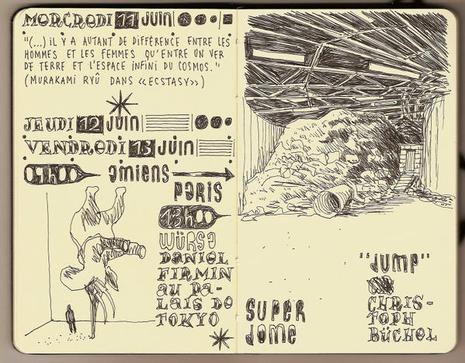 MERCREDI 11 JUIN
"(...) IL Y A AUTANT DE DIFFÉRENCE ENTRE LES
HOMMES ET LES FEMMES QU'ENTRE UN VER
DE TERRE ET L'ESPACE INFINI DU COSMOS."
(MURAKAMI RYÛ DANS «ECSTASY»)
JEUDI 12 JUIN
VENDREDI 13 JUIN
AMIENS
PARIS
WÜRSA
DANIEL
FIRMIN
AU PA-
LAIS DE
TOKYO
SUPER
DOME
"JUMP"
CHRIS-
TOPH
BÜCHEL